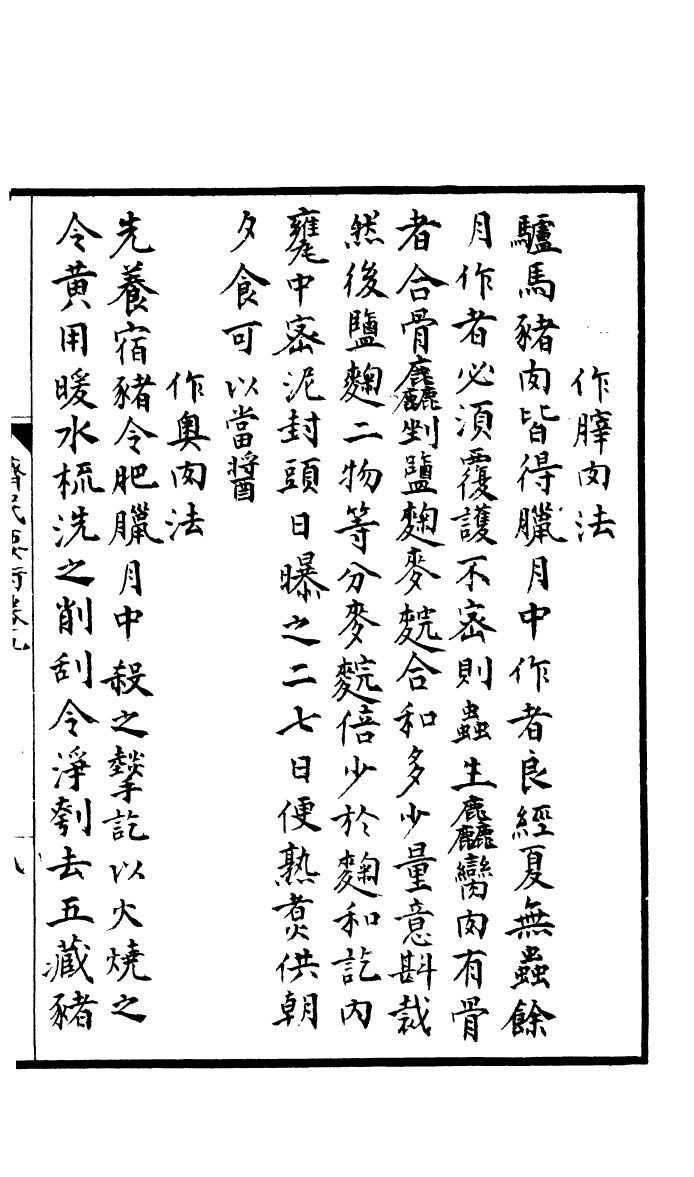 作䏰肉法
驢馬豬肉皆得臘月中作者良經夏無蟲餘
月作者必須覆護不密則蟲生麤臠肉有骨
者合骨麤剉鹽麴麥䴷合和多少量意斟裁
然後鹽麴二物等分麥䴷倍少於麴和訖內
甕中密泥封頭日曝之二七日便熟煮供朝
夕食可以當醬
作奧肉法
先養宿豬令肥臘月中殺之㨻訖以火燒之
令黃用暖水梳洗之削刮令淨刳去五藏豬
齊民要術卷九
八